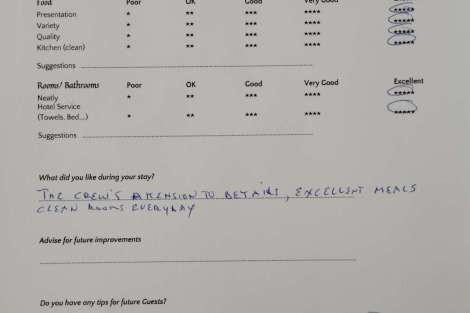 Food Poor OK Good Very Good
Presentation * ** *** **** *****
Variety * ** *** **** *****
Quality * ** *** **** *****
Kitchen (clean) * ** *** **** *****
Suggestions
Rooms/ Bathrooms Poor OK Good Very Good Excellent
Neatly * ** *** **** *****
Hotel Service
(Towels, Bed...) * ** *** **** *****
Suggestions
What did you like during your stay?
THE CREW'S ATENSION TO DETAILS, EXCELLENT MEALS
CLEAN ROOMS EVERYDAY
Advise for future improvements
Do you have any tips for future Guests?